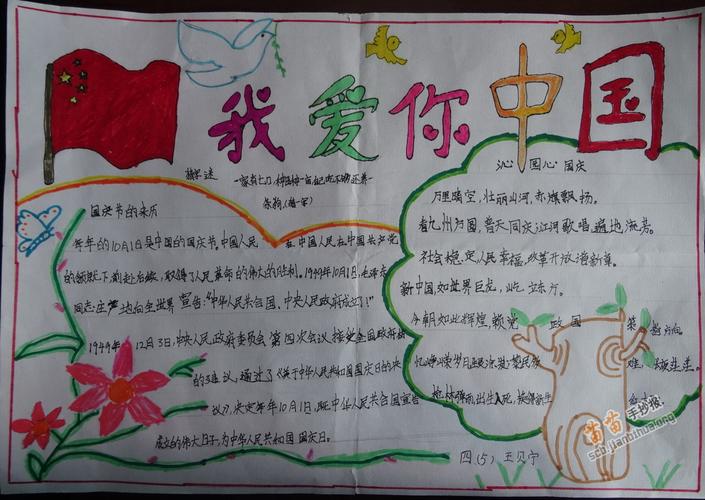 我爱你中国
猜字迷
朱鹮(猜一字)
国庆节的来历
每年的10月1日是中国的国庆节,中国人民 在中国共产党
的领导下,前赴后继,取得了人民革命的伟大的胜利。1949年10月1日,毛泽东
同志庄严地向全世界宣告:"中华人民共合国、中央人民政府成立了!"
1949年12月3日,中央人民政府委员会第四次会议,接受全国政协
的建议,通过了《关于中华人民共和国国庆日的决
议》,决定每年10月1日,既中华人民共合国宣告
成立的伟大日子,为中华人民共和国国庆日。
沁园心 国庆
万里晴空,壮丽山河,赤旗飘扬。
看九州方圆,普天同庆,江河歌唱,遍地流芳。
社会稳定,人民幸福,改革开放谱新章。
新中国,如世界巨龙,屹立东方。
今朝如此辉煌,赖党政国策 方向
忆峥嵘岁月 民族 难,
枪林弹雨,出生入死,
四(5) 王贝宁
苗苗手抄报
scb.jianbihua.org